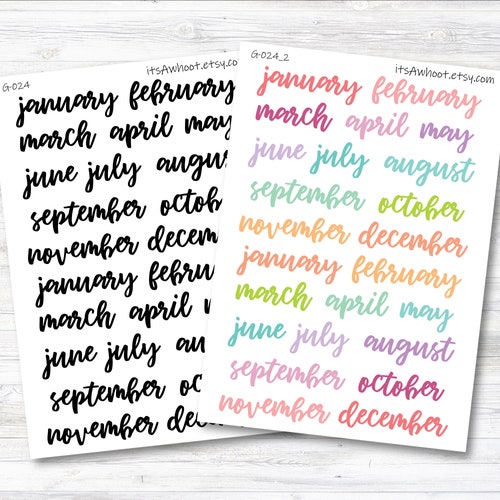 itsAwhoot.etsy.com
G-024
january february
march april may
june july august
september october
november december
january february
march april may
june july august
september october
november december
G-024_2
itsAwhoot.etsy.com
january february
march april may
june july august
september october
november december
january february
march april may
june july august
september october
november december